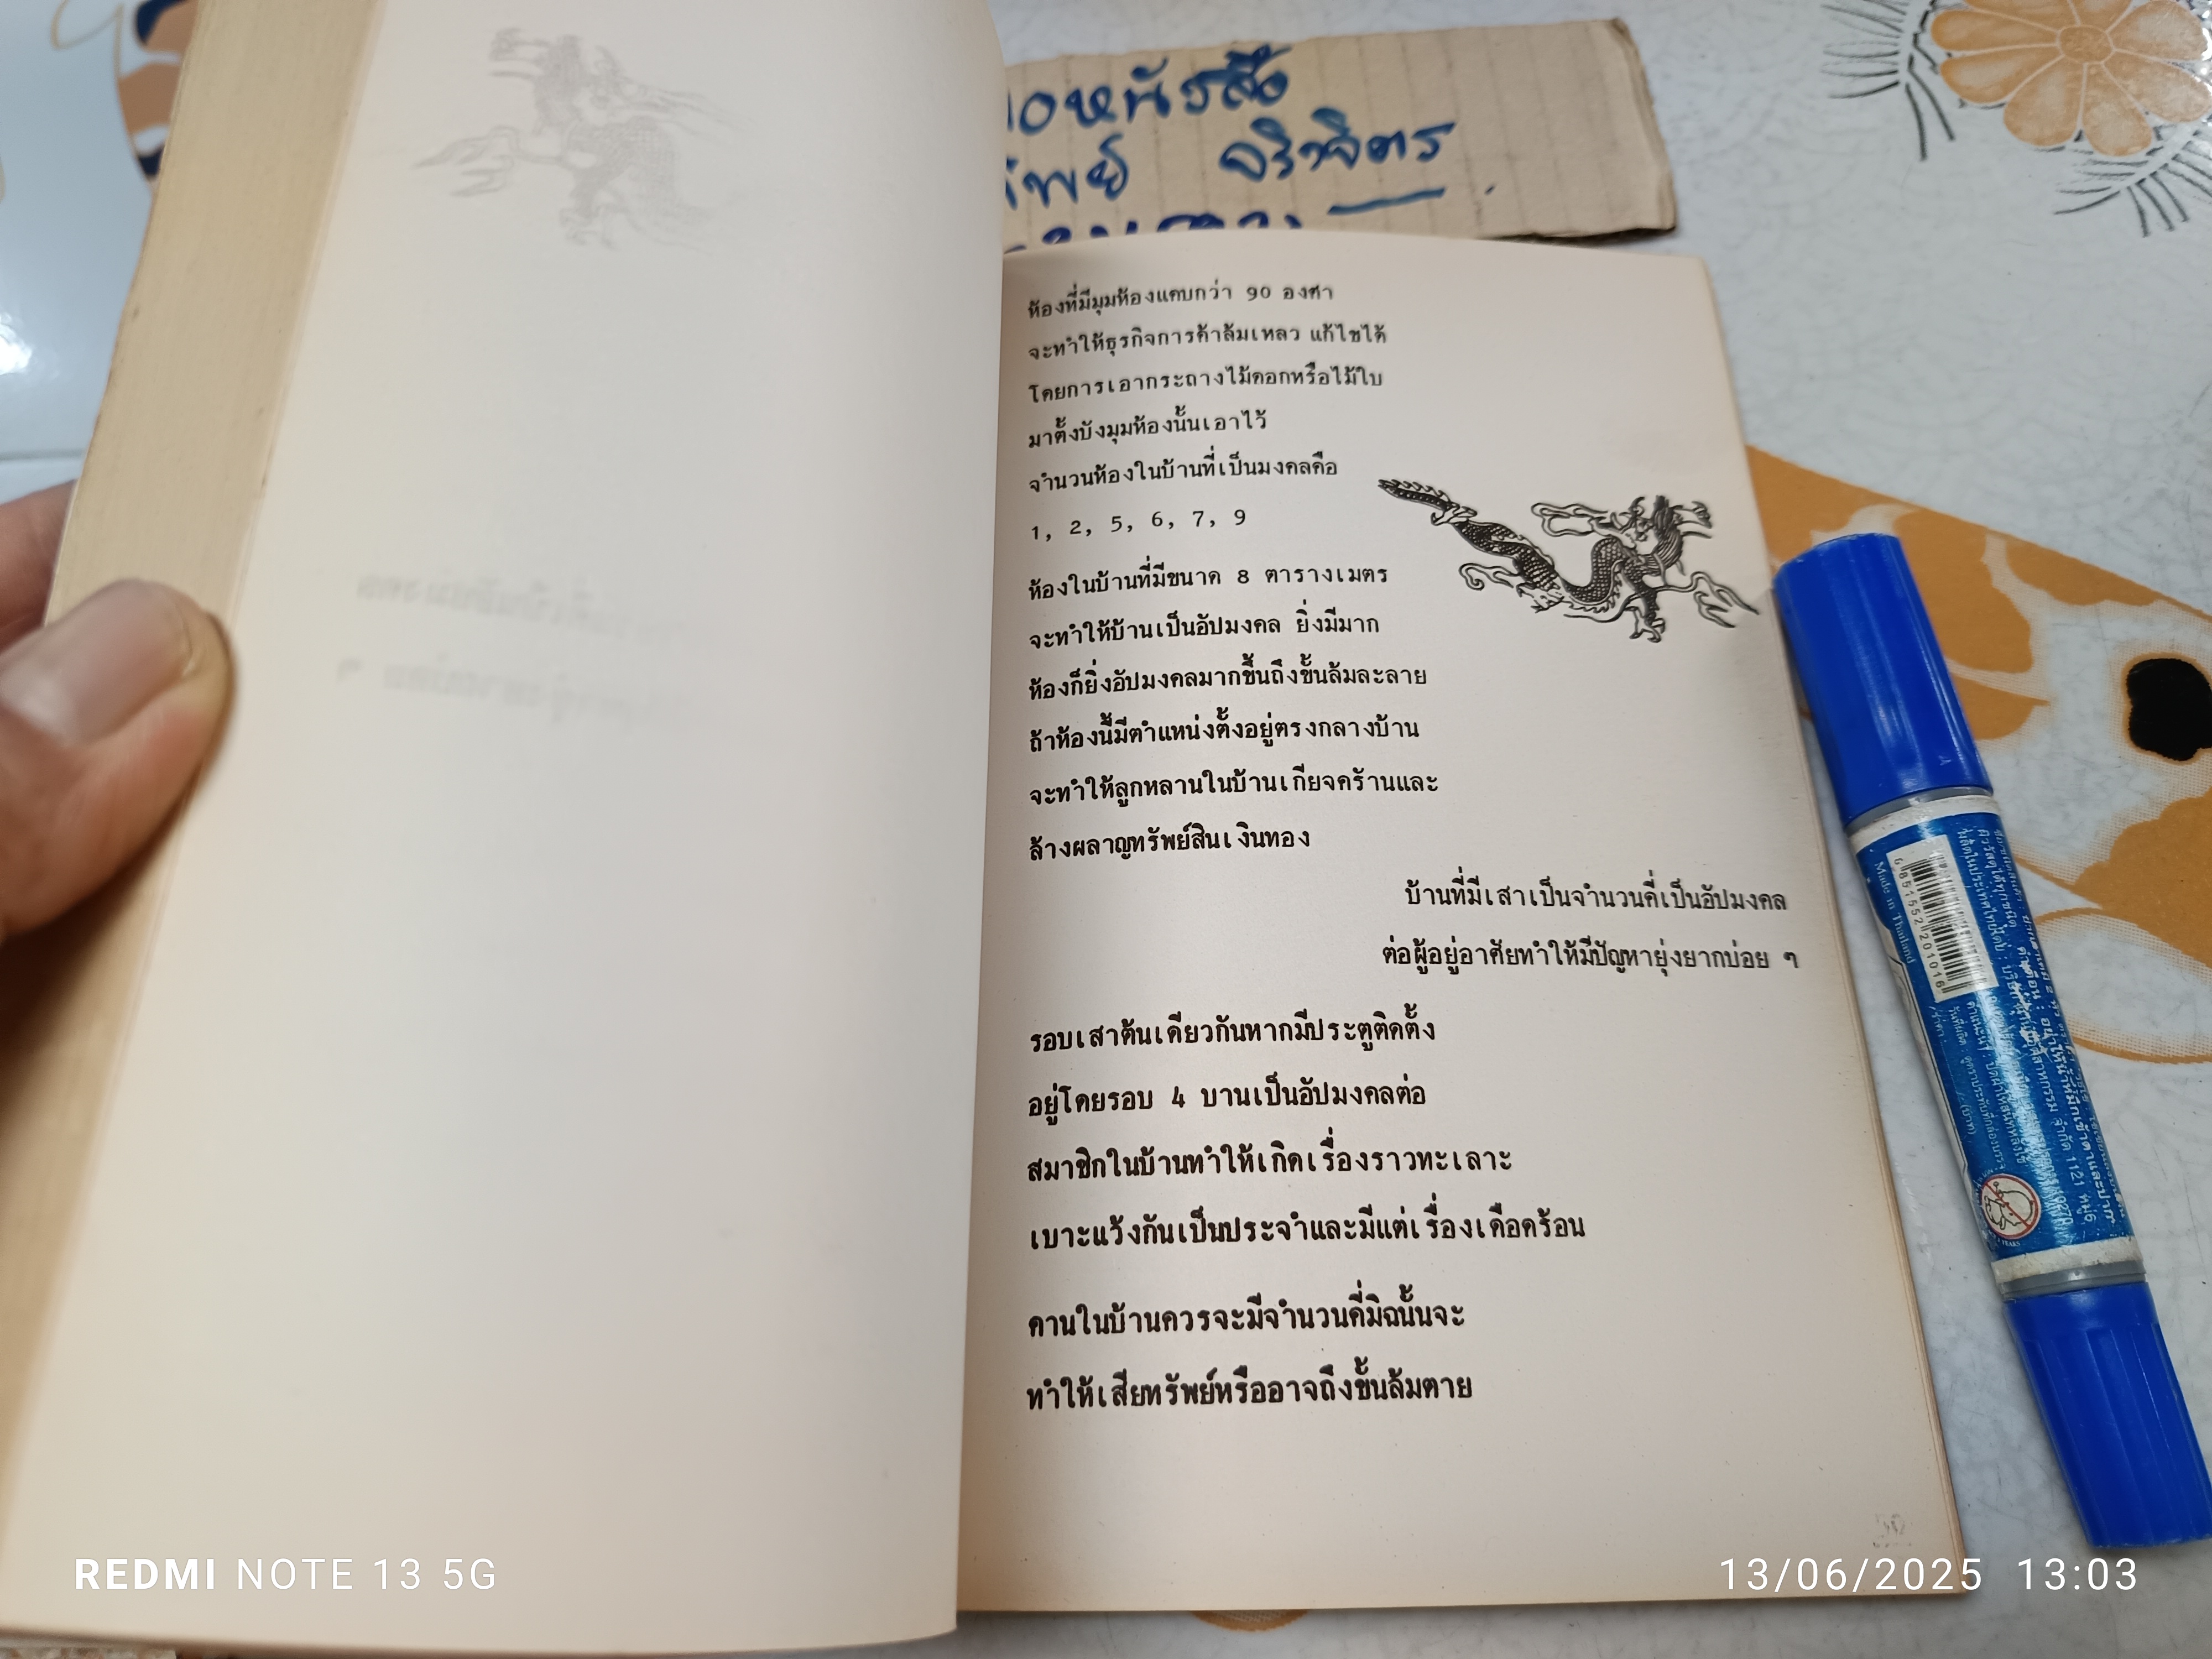 หนังสือ
จริจิตร
ห้องที่มีมุมห้องแคบกว่า 90 องศา
จะทำให้ธุรกิจการค้าล้มเหลว แก้ไขได้
โดยการเอากระถางไม้ดอกหรือไม้ใบ
มาตั้งบังมุมห้องนั้นเอาไว้
จำนวนห้องในบ้านที่เป็นมงคลคือ
1, 2, 5, 6, 7, 9
ห้องในบ้านที่มีขนาด 8 ตารางเมตร
จะทำให้บ้านเป็นอัปมงคล ยิ่งมีมาก
ห้องก็ยิ่งอัปมงคลมากขึ้นถึงขั้นล้มละลาย
ถ้าห้องนี้มีตำแหน่งตั้งอยู่ตรงกลางบ้าน
จะทำให้ลูกหลานในบ้านเกียจคร้านและ
ล้างผลาญทรัพย์สินเงินทอง
บ้านที่มีเสาเป็นจำนวนคี่เป็นอัปมงคล
ต่อผู้อยู่อาศัยทำให้มีปัญหายุ่งยากบ่อย ๆ
รอบเสาต้นเดียวกันหากมีประตูติดตั้ง
อยู่โดยรอบ 4 บานเป็นอัปมงคลต่อ
สมาชิกในบ้านทำให้เกิดเรื่องราวทะเลาะ
เบาะแว้งกันเป็นประจำและมีแต่เรื่องเดือดร้อน
คานในบ้านควรจะมีจำนวนคี่มิฉนั้นจะ
ทำให้เสียทรัพย์หรืออาจถึงขั้นล้มตาย
Made in Thailand
REDMI NOTE 13 5G
13/06/2025 13:03